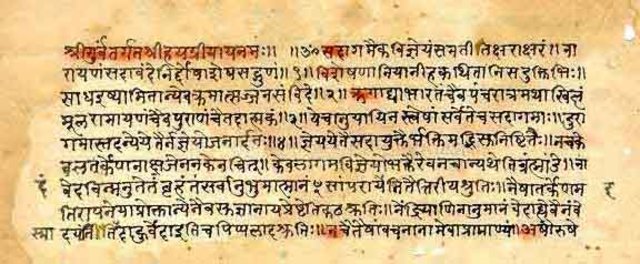 श्रीगुर्वंतर्गतश्रीहयग्रीवायनमः॥ ॥ॐसदागमैकविज्ञेयंसमतीतक्षराक्षरं॥ना
रायणंसदावंदेनिर्दोषाशेषसद्गुणं॥१॥विशेषणानियानीहकथितानिसदुक्तिभिः॥
साधयिष्यामितान्येवक्रमात्सज्जनसंविदे॥२॥ऋगाद्याभारतंचैवपंचरात्रमथाखिलं
मूलरामायणंचैवपुराणंचैतदात्मकं॥३॥येचानुयायिनस्त्वेषांसर्वेतेचसदागमाः॥दुरा
गमास्तदन्येयेतैर्नज्ञेयोजनार्दनः॥४॥ज्ञेयएतैःसदायुक्तैर्भक्तिमद्भिःसुनिष्ठितैः॥नचके
वलतर्केणनाक्षजेननकेनचित्॥केवलागमविज्ञेयोभक्तैरेवनचान्यथेतिब्रह्मांडे॥ना
वेदविन्मनुतेतंबृहंतंसर्वानुभुमात्मानंसांपरायेइतितैत्तिरीयश्रुतिः॥नैषातर्केणम
तिरापनेयाप्रोक्तान्येनैवसुज्ञानायप्रेष्ठेतिकठश्रुतिः॥नेंद्रियाणिनानुमानंवेदाह्येवैनंवे
दयंति॥तस्मादाहुर्वेदाइतिचपिप्पलादश्रुतिः॥नचैतेषांवचनानामेवाप्रामाण्यं॥अपौरुषे